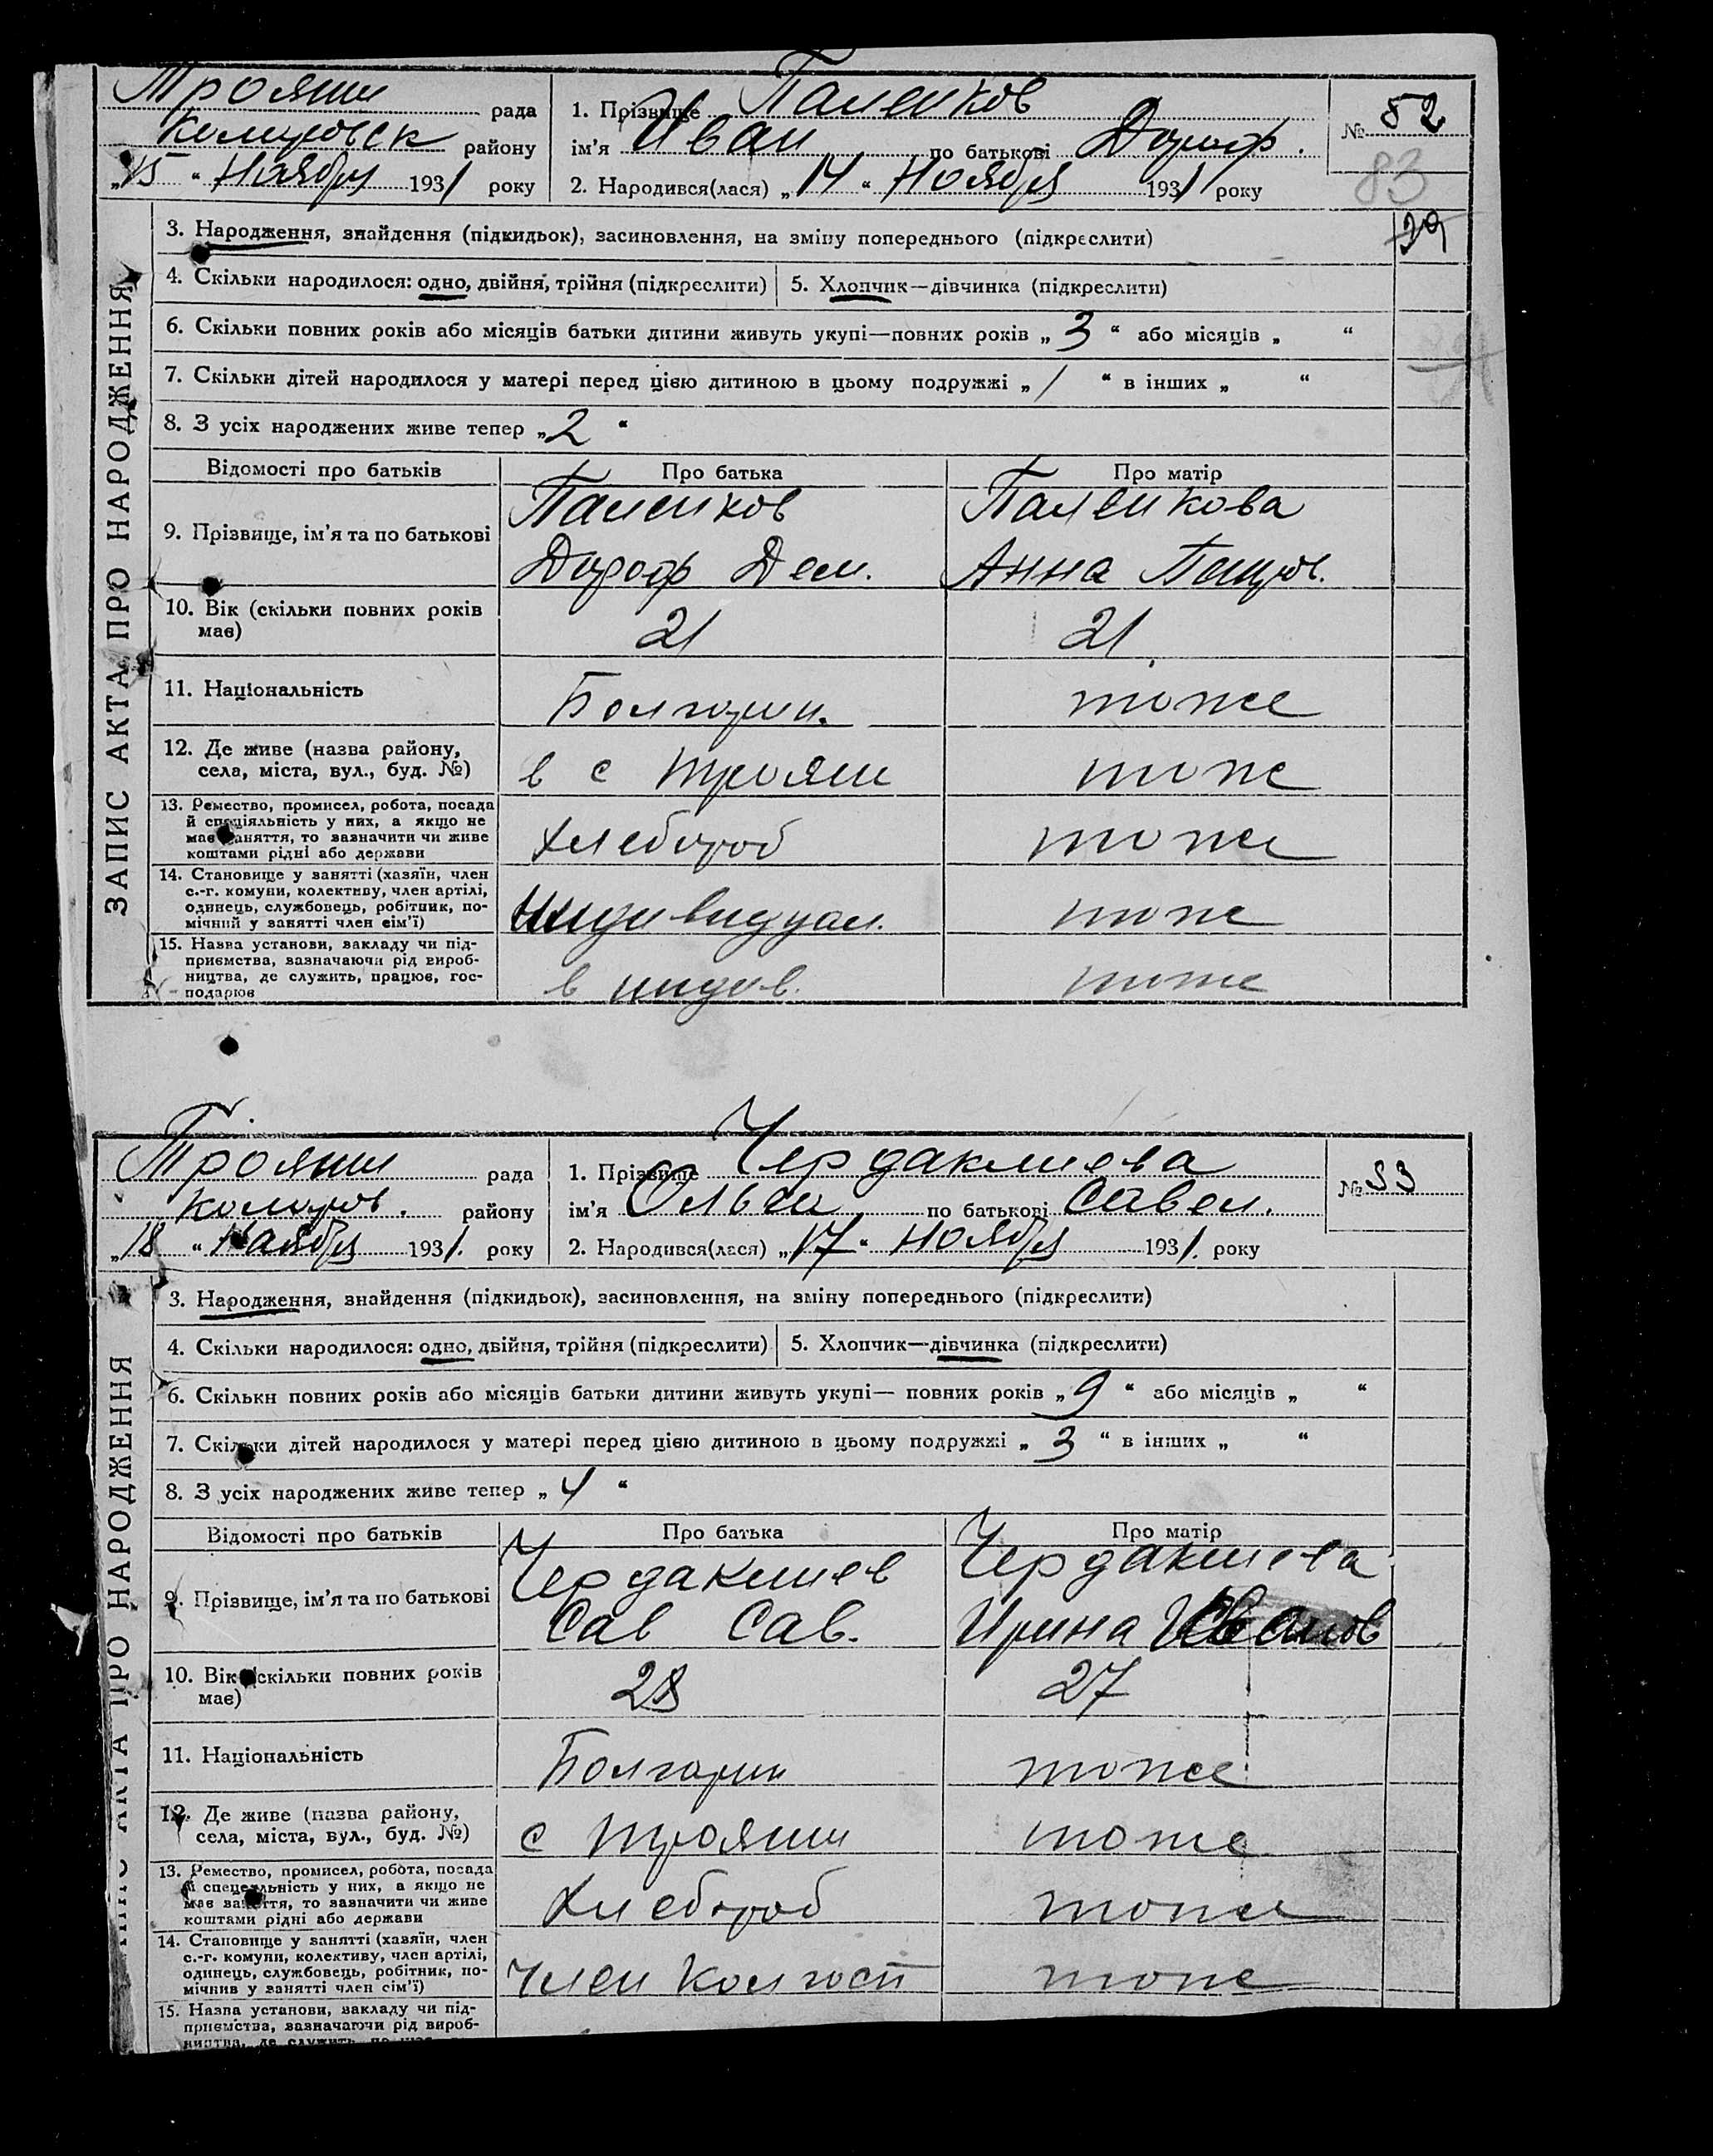 ЗАПИС АКТА ПРО НАРОДЖЕННЯ
Трояни рада
району
„15“ Ноября 1931 року
1. Прізвище Паленков
ім'я Иван по батькові Дороф.
2. Народився(лася) „14“ Ноября 1931 року
№ 52
83
29
3. Народження, знайдення (підкидьок), засиновлення, на зміну попереднього (підкреслити)
4. Скільки народилося: одно, двійня, трійня (підкреслити) 5. Хлопчик—дівчинка (підкреслити)
6. Скільки повних років або місяців батьки дитини живуть укупі—повних років „3“ або місяців „ “
7. Скільки дітей народилося у матері перед цією дитиною в цьому подружжі „1“ в інших „ “
8. З усіх народжених живе тепер „2“
Відомості про батьків Про батька Про матір
9. Прізвище, ім'я та по батькові
Паленков Паленкова
Дороф Дем. Анна
10. Вік (скільки повних років
має)
21 21
11. Національність
Болгарин. тоже
12. Де живе (назва району,
села, міста, вул., буд. №)
в с Трояни тоже
13. Ремество, промисел, робота, посада
й спеціяльність у них, а якщо не
має заняття, то зазначити чи живе
коштами рідні або держави
Хлебороб тоже
14. Становище у занятті (хазяїн, член
с.-г. комуни, колективу, член артілі,
одинець, службовець, робітник, по-
мічний у занятті член сім'ї)
Индивидуал. тоже
15. Назва установи, закладу чи під-
приємства, зазначаючи рід вироб-
ництва, де служить, працює, гос-
подарює
в индив. тоже
ЗАПИС АКТА ПРО НАРОДЖЕННЯ
Трояни рада
району
„18“ Ноября 1931. року
1. Прізвище Чердаклиева
ім'я Ольга по батькові Савел.
2. Народився(лася) „17“ Ноября 1931. року
№ 53
3. Народження, знайдення (підкидьок), засиновлення, на зміну попереднього (підкреслити)
4. Скільки народилося: одно, двійня, трійня (підкреслити) 5. Хлопчик—дівчинка (підкреслити)
6. Скільки повних років або місяців батьки дитини живуть укупі— повних років „9“ або місяців „ “
7. Скільки дітей народилося у матері перед цією дитиною в цьому подружжі „3“ в інших „ “
8. З усіх народжених живе тепер „4“
Відомості про батьків Про батька Про матір
9. Прізвище, ім'я та по батькові
Чердаклиев Чердаклиева
Сав Сав. Ирина Иванов
10. Вік (скільки повних років
має)
28 27
11. Національність
Болгарин тоже
12. Де живе (назва району,
села, міста, вул., буд. №)
с Трояни тоже
13. Ремество, промисел, робота, посада
й спеціяльність у них, а якщо не
має заняття, то зазначити чи живе
коштами рідні або держави
Хлебороб тоже
14. Становище у занятті (хазяїн, член
с.-г. комуни, колективу, член артілі,
одинець, службовець, робітник, по-
мічнив у занятті член сім'ї)
член тоже
15. Назва установи, закладу чи під-
приємства, зазначаючи рід вироб-
ництва, де служить